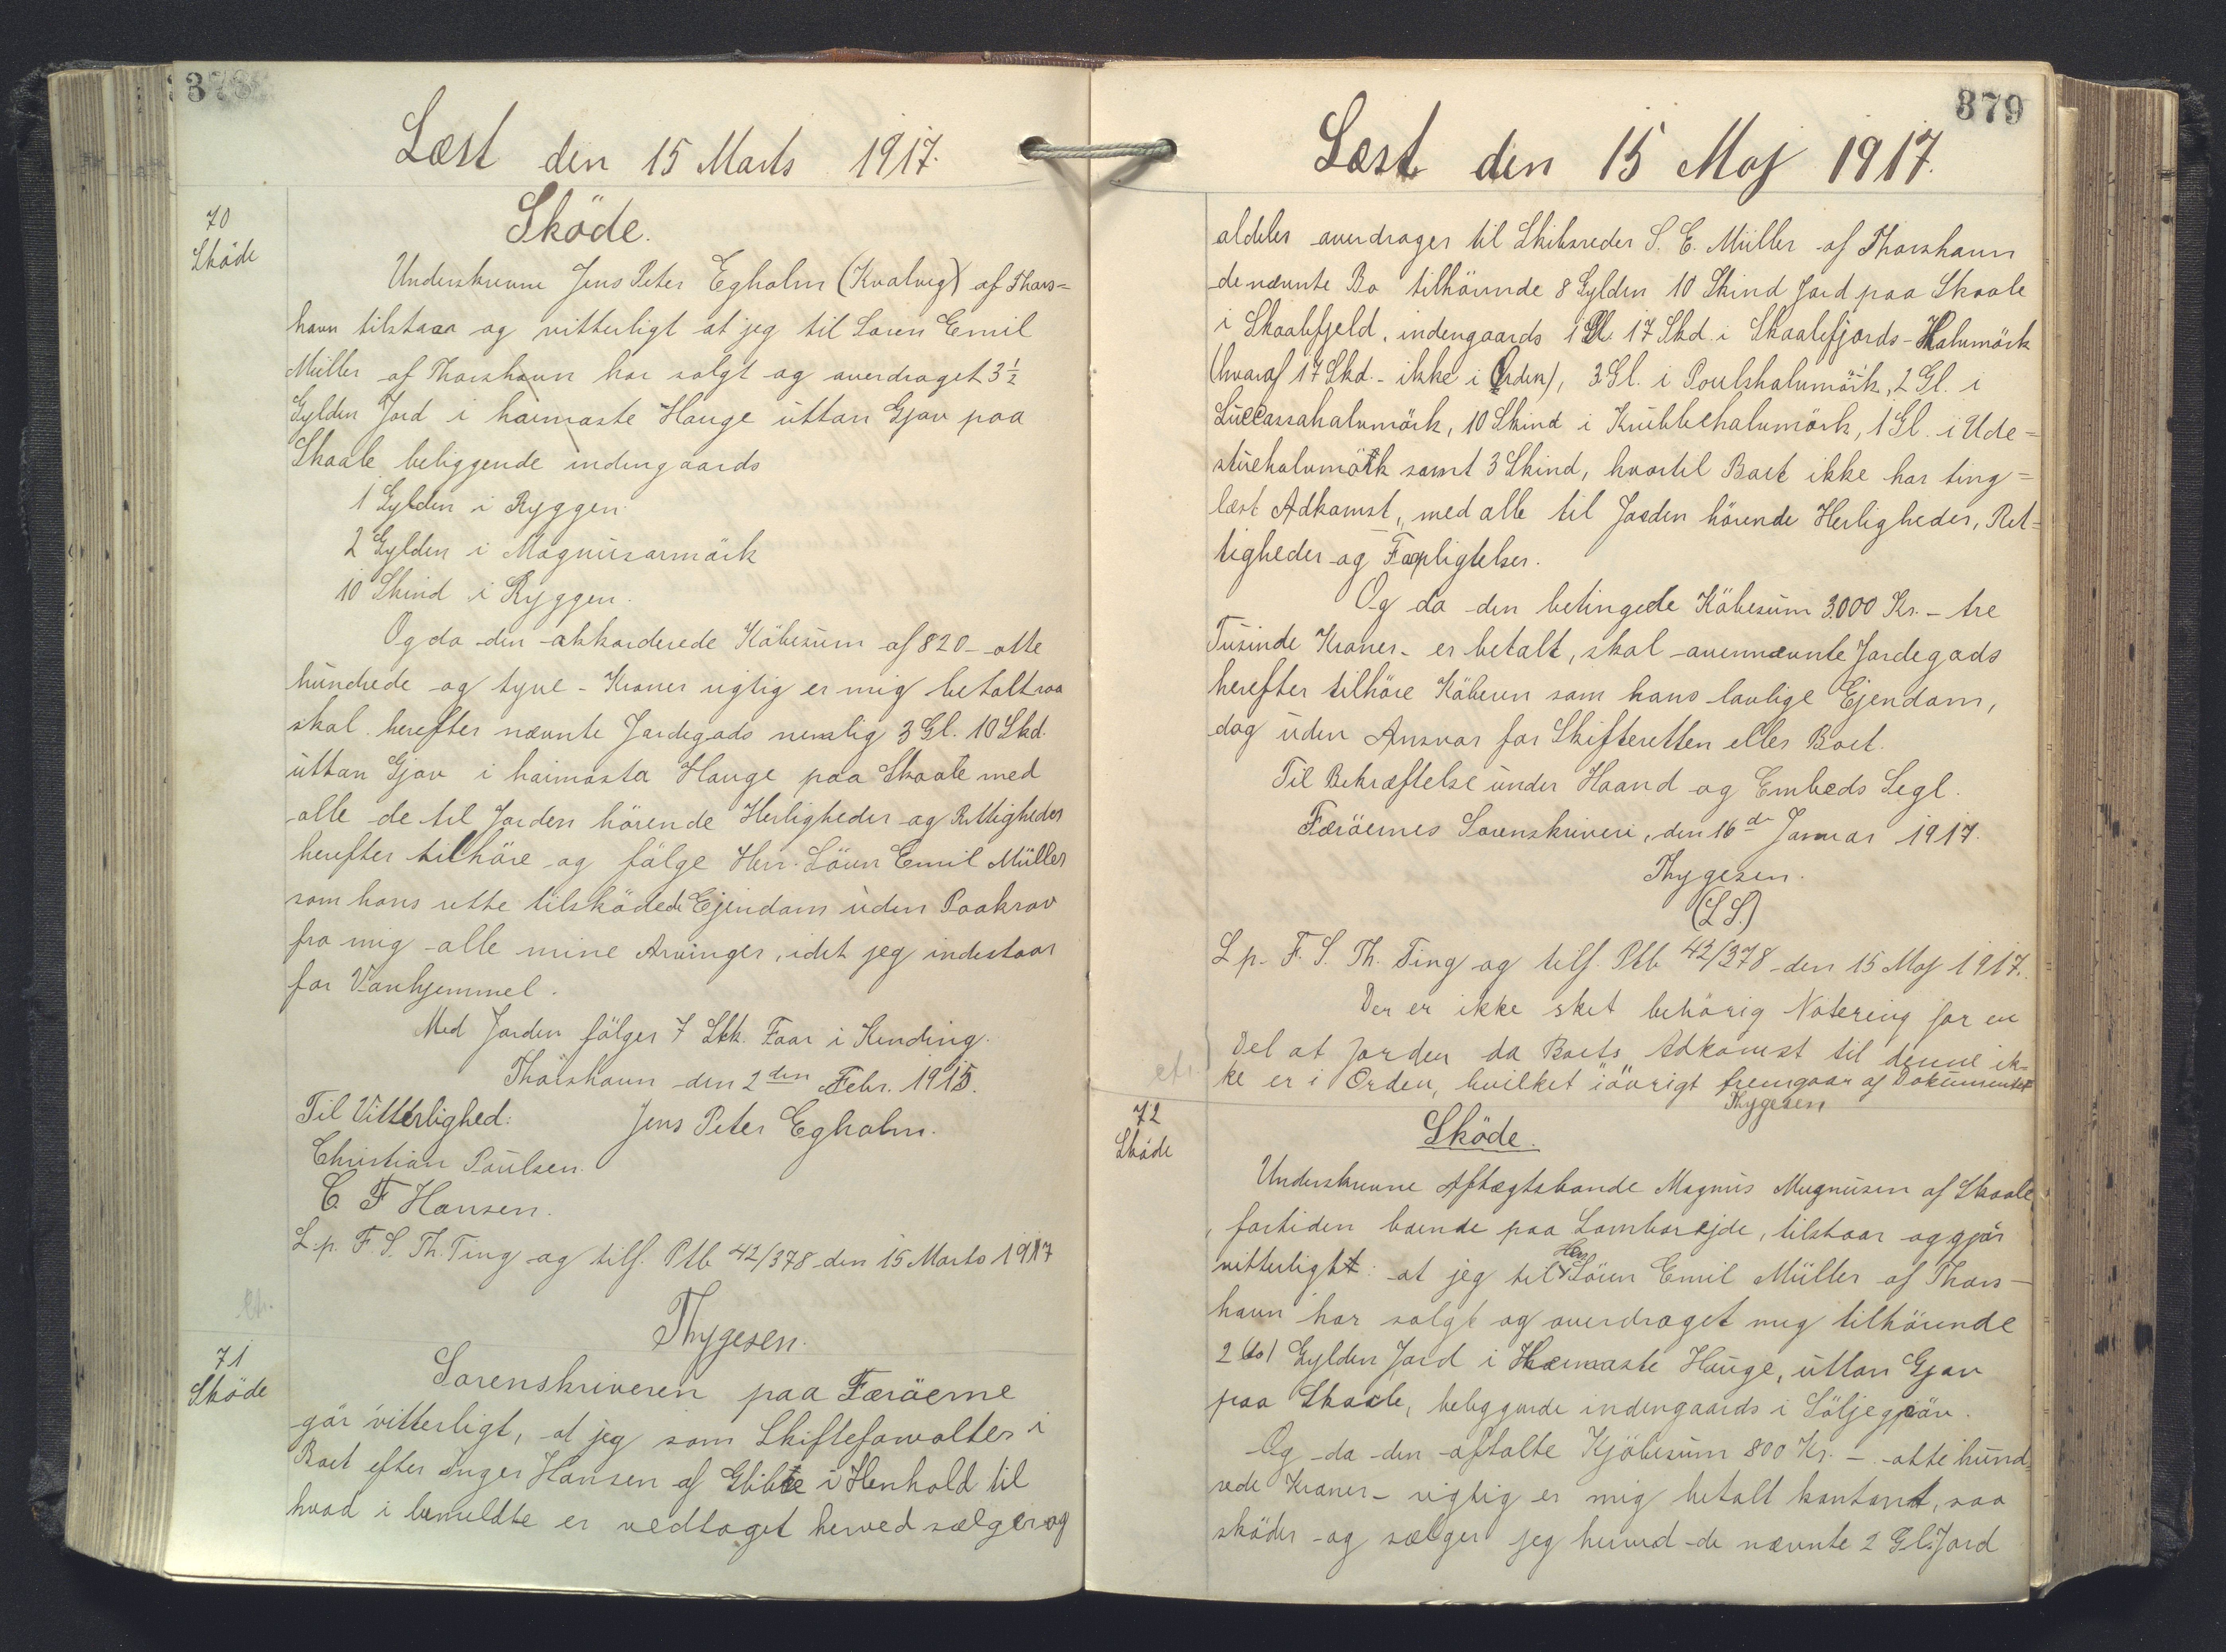 378
Læst den 15 Marts 1917.
70
Sköde
Sköde.
Underskrevne Jens Peter Egholm (Kvalvig) af Thors=
havn tilstaar og vitterligt at jeg til Sören Emil
Müller af Thorshavn har solgt og overdraget 3½
Gylden Jord i haimaste Hauge uttan Gjov paa
Skaale beliggende indengaards
1 Gylden i Ryggen
2 Gylden i Magnusarmörk
10 Skind i Ryggen.
Og da den akkorderede Köbesum af 820 - otte
hundrede og tyve - Kroner rigtig er mig betalt saa
skal herefter nævnte Jordegods nemlig 3 Gl. 10 Skd.
uttan Gjov i haimasta Hauge paa Skaale med
alle de til Jorden hörende Herligheder og Rettigheder
herefter tilhöre og fölge Herr. Sören Emil Müller
som hans rette tilsködede Ejendom uden Paakrav
fra mig alle mine Arvinger, idet jeg indestaar
for Vanhjemmel.
Med Jorden fölger 7 Stk. Faar i Kending.
Thorshavn den 2den Febr. 1915.
Til Vitterlighed: Jens Peter Egholm.
Christian Poulsen.
C F Hansen.
L. p. F. S. Th. Ting og tilf. Ptb 42/378 den 15 Marts 1917
Thygesen.
71
Sköde
Sorenskriveren paa Færöerne
gör vitterligt, at jeg som Skifteforvalter i
Boet efter Inger Hansen af Glibte i Henhold til
hvad i bemeldte er vedtaget herved sælger og
379
Læst den 15 Maj 1917.
aldeles overdrager til Skibsreder S. E. Müller af Thorshavn
de nævnte Bo tilhörende 8 Gylden 10 Skind Jord paa Skaale
i Skaalefjeld, indengaards 1 Gl. 17 Skd. i Skaalefjords-Halvmörk
(hvoraf 17 Skd. - ikke i Orden), 3 Gl. i Poulshalvmörk, 2 Gl. i
Luccassahalvmörk, 10 Skind i Krubbehalvmörk, 1 Gl. i Ude=
stuehalvmörk samt 3 Skind, hvortil Boet ikke har ting=
læst Adkomst, med alle til Jorden hörende Herligheder, Ret=
tigheder og Forpligtelser.
Og da den betingede Köbesum 3.000 Kr. - tre
Tusinde Kroner - er betalt, skal ovennævnte Jordegods
herefter tilhöre Köberen som hans lovlige Ejendom,
dog uden Ansvar for Skifteretten eller Boet.
Til Bekræftelse under Haand og Embeds Segl.
Færöernes Sorenskriveri, den 16de Januar 1917.
Thygesen.
(L S.)
L p. F. S. Th. Ting og tilf. Ptb 42/378 den 15 Maj 1917.
Der er ikke sket behörig Notering for en
Del at Jorden da Boets Adkomst til denne ik-
ke er i Orden, hvilket iövrigt fremgaar af Dokumentet
Thygesen
72
Sköde
Sköde.
Underskrevne Aftægtsbonde Magnus Magnusen af Skaale
, fortiden boende paa Lambarejde, tilstaar og gjör
vitterligt: at jeg til Herr Sören Emil Müller af Thors-
havn har solgt og overdraget mig tilhörende
2 (to) Gylden Jord i Haimaste Hauge, uttan Gjov
paa Skaale, beliggende indengaards i Söljegröv.
Og da den aftalte Kjöbesum 800 Kr. - otte hund=
rede Kroner - rigtig er mig betalt kontant, saa
sköder og sælger jeg herved de nævnte 2 Gl. Jord